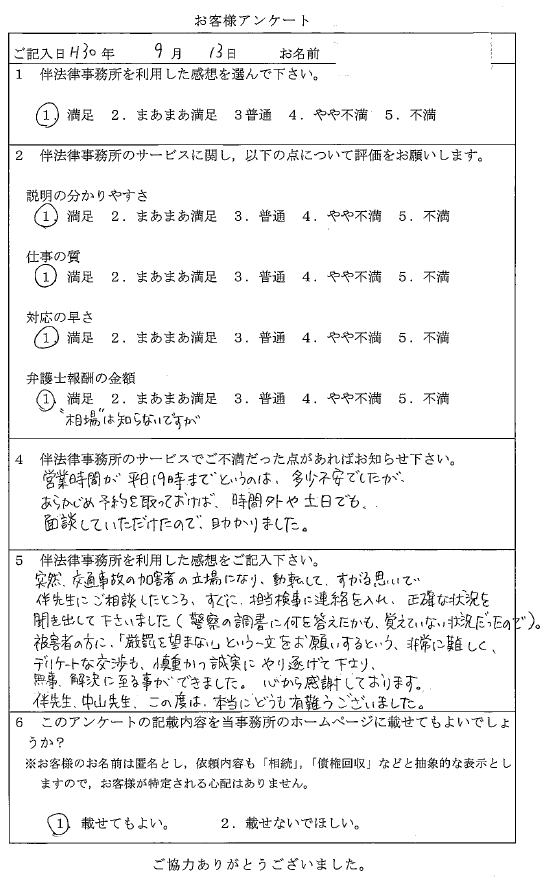 お客様アンケート
ご記入日 H30年 9月 13日 お名前
1 伴法律事務所を利用した感想を選んで下さい。
1. 満足 2. まあまあ満足 3 普通 4. やや不満 5. 不満
2 伴法律事務所のサービスに関し，以下の点について評価をお願いします。
説明の分かりやすさ
1. 満足 2. まあまあ満足 3. 普通 4. やや不満 5. 不満
仕事の質
1. 満足 2. まあまあ満足 3. 普通 4. やや不満 5. 不満
対応の早さ
1. 満足 2. まあまあ満足 3. 普通 4. やや不満 5. 不満
弁護士報酬の金額
1. 満足 2. まあまあ満足 3. 普通 4. やや不満 5. 不満
"相場"は知らないですが
4 伴法律事務所のサービスでご不満だった点があればお知らせ下さい。
営業時間が平日19時までというのは、多少不安でしたが、
あらかじめ予約を取っておけば、時間外や土日でも、
面談していただけたので、助かりました。
5 伴法律事務所を利用した感想をご記入下さい。
突然、交通事故の加害者の立場になり、動転して、すがる思いで
伴先生にご相談したところ、すぐに、担当検事に連絡を入れ、正確な状況を
聞き出して下さいました（警察の調書に何を答えたかも、覚えていない状況だったので）。
被害者の方に、「厳罰を望まない」という一文をお願いするという、非常に難しく、
デリケートな交渉も、慎重かつ誠実にやり遂げて下さり、
無事、解決に至る事ができました。心から感謝しております。
伴先生、中山先生、この度は、本当にどうも有難うございました。
6 このアンケートの記載内容を当事務所のホームページに載せてもよいでしょ
うか？
※お客様のお名前は匿名とし，依頼内容も「相続」，「債権回収」などと抽象的な表示とし
ますので，お客様が特定される心配はありません。
1. 載せてもよい。 2. 載せないでほしい。
ご協力ありがとうございました。